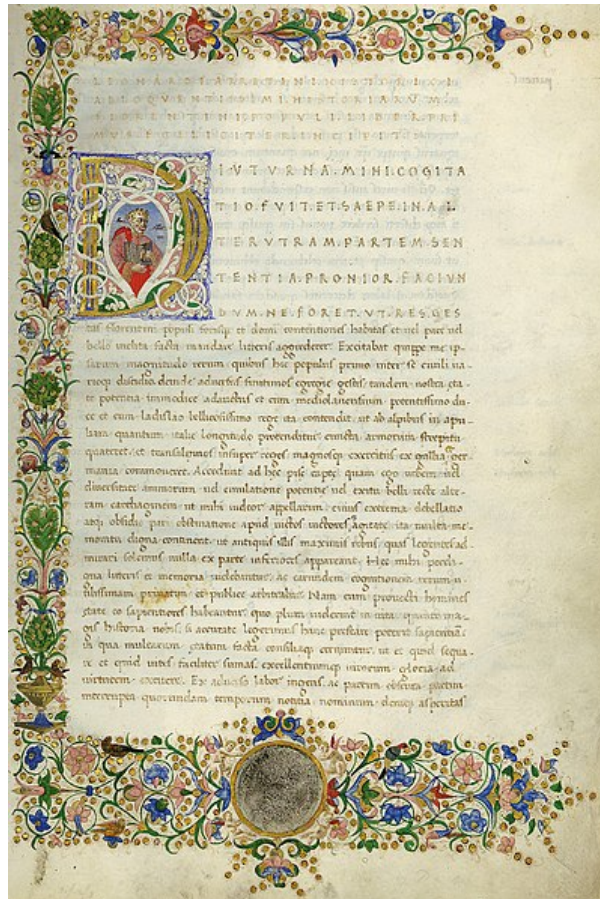 LEONARDI ARRETINI
ELOQVENTISSIMI HISTORIARVM
FLORENTINI POPVLI LIBER PRI
MVS FELICITER INCIPIT
DIVTVRNA.MIHI.COGITA
TIO.FVIT.ET.SAEPE.IN.AL
TERVTRAM.PARTEM.SEN
TENTIA.PRONIOR.FACIVN
DVM.NE.FORET.VT.RES.GES
tas florentini populi forisque et domi contentiones habitas et uel pace uel
bello inclita facta mandare litteris aggrederer. Excitabat quippe me ip-
sarum magnitudo rerum quibus hic populus primo inter se ciuili ua-
rioque discidio deinde aduersus finitimos egregie gestis tandem nostra eta-
te potentia immodice adauctus et cum mediolanensium potentissimo du-
ce et cum ladislao bellicosissimo rege ita contendit ut ab alpibus in apu-
liam quantum italie longitudo protenditur cuncta armorum strepitu
quateret et transalpinos insuper reges magnosque exercitus ex gallia et ger-
mania commoueret. Accedunt ad hec pise capte quam ego urbem uel
diuersitate animorum uel emulatione potentie uel exitu belli recte alte-
ram carthaginem ut mihi uidetur appellarim cuius extrema debellatio
atque obsidio pari obstinatione apud uictos uictoresque agitata ita multa me-
moratu digna continent ut antiquis illis maximis rebus quas legentes ad-
mirari solemus nulla ex parte inferiores appareant. Hec mihi perdi-
gna litteris et memoria uidebantur ac earundem cognitionem rerum u-
tilissimam priuatim et publice arbitrabar. Nam cum prouecti homines
etate eo sapientiores habeantur quo plura uiderunt in uita quanto ma-
gis historia nobis si accurate legerimus hanc prestare poterit sapientiam
in qua multarum etatum facta consiliaque cernuntur ut et quid sequa-
re et quid uites faciliter sumas excellentiumque uirorum gloria ad
uirtutem excitere. Ex aduerso labor ingens ac partim obscura partim
interrupta quorundam temporum notitia nominum denique asperitas